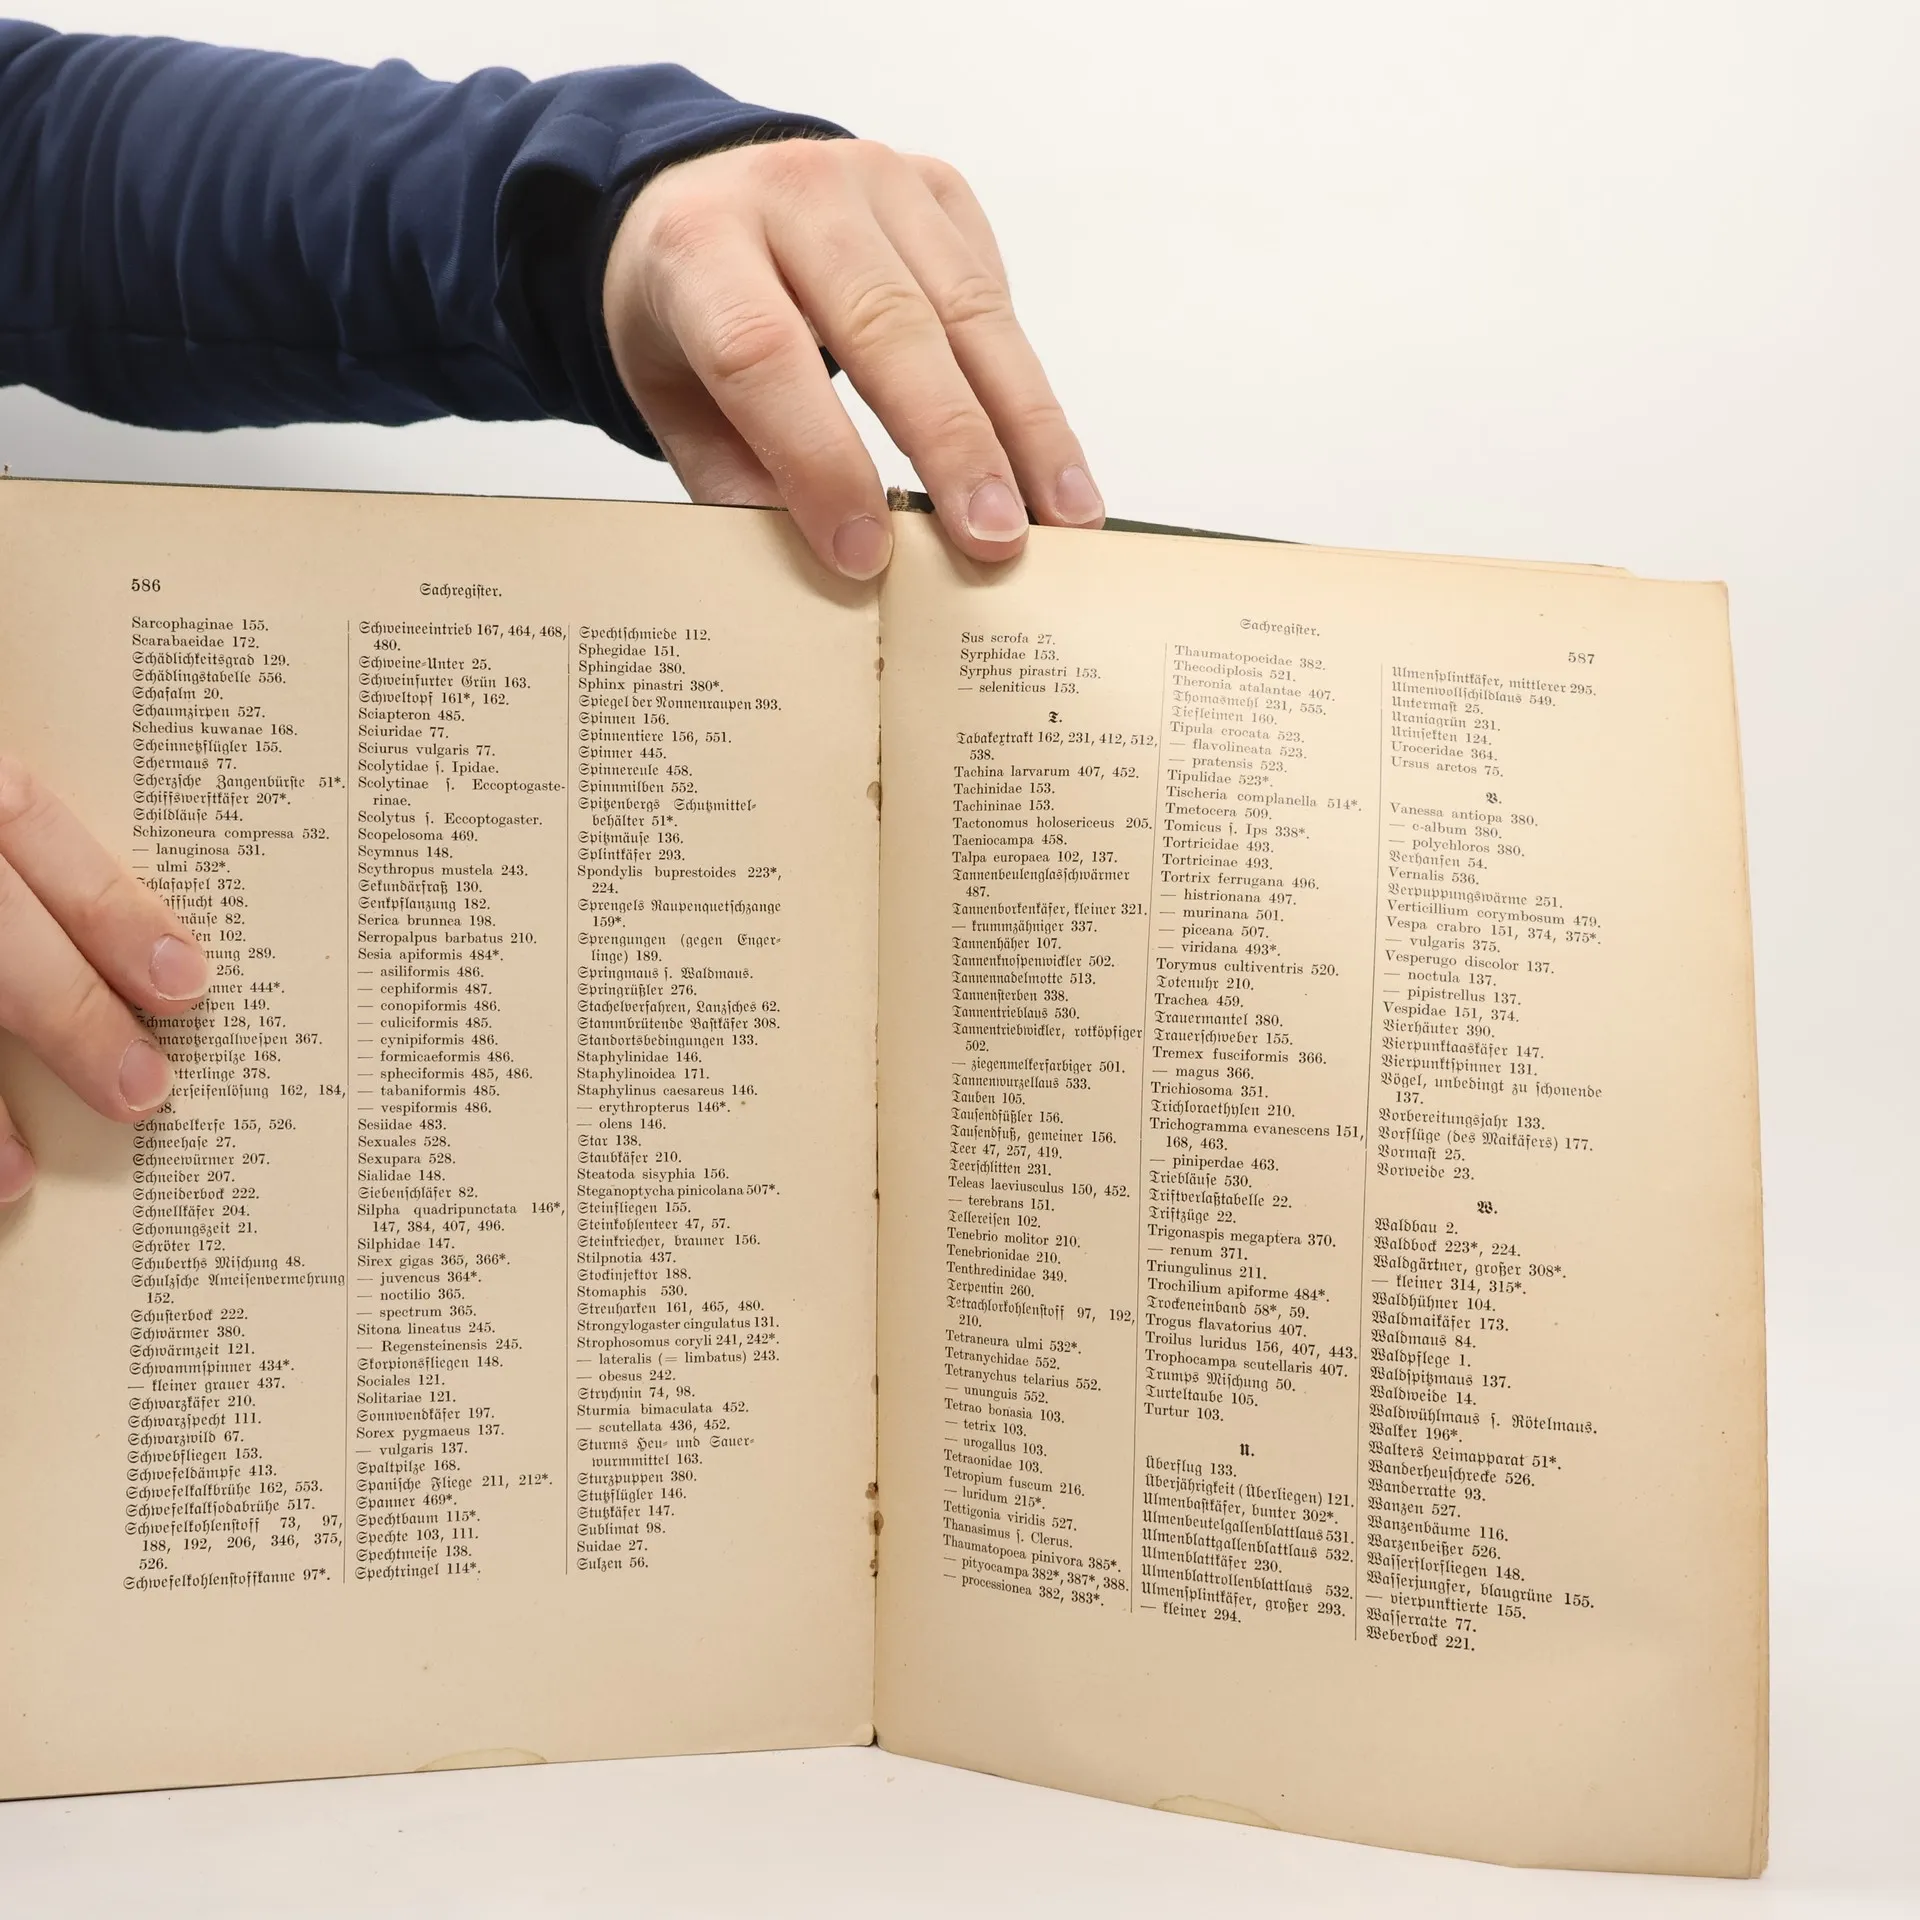 586
Sachregister.
Sarcophaginae 155.
Scarabaeidae 172.
Schädlichkeitsgrad 129.
Schädlingstabelle 556.
Schafalm 20.
Schaumzirpen 527.
Schedius kuwanae 168.
Scheinnetzflügler 155.
Schermaus 77.
Scherzsche Zangenbürste 51*.
Schiffswerftkäfer 207*.
Schildläuse 544.
Schizoneura compressa 532.
— lanuginosa 531.
— ulmi 532*.
Schlafapfel 372.
408.
82.
102.
289.
256.
444*.
149.
Schmarotzer 128, 167.
367.
168.
378.
162, 184,
Schnabelkerfe 155, 526.
Schneehase 27.
Schneewürmer 207.
Schneider 207.
Schneiderbock 222.
Schnellkäfer 204.
Schonungszeit 21.
Schröter 172.
Schuberths Mischung 48.
Schulzsche Ameisenvermehrung
152.
Schusterbock 222.
Schwärmer 380.
Schwärmzeit 121.
Schwammspinner 434*.
— kleiner grauer 437.
Schwarzkäfer 210.
Schwarzspecht 111.
Schwarzwild 67.
Schwebfliegen 153.
Schwefeldämpfe 413.
Schwefelkalkbrühe 162, 553.
Schwefelkalksodabrühe 517.
Schwefelkohlenstoff 73, 97,
188, 192, 206, 346, 375,
526.
Schwefelkohlenstoffkanne 97*.
Schweineeintrieb 167, 464, 468,
480.
Schweine-Unter 25.
Schweinfurter Grün 163.
Schweltopf 161*, 162.
Sciapteron 485.
Sciuridae 77.
Sciurus vulgaris 77.
Scolytidae s. Ipidae.
Scolytinae s. Eccoptogaste-
rinae.
Scolytus s. Eccoptogaster.
Scopelosoma 469.
Scymnus 148.
Scythropus mustela 243.
Sekundärfraß 130.
Senkpflanzung 182.
Serica brunnea 198.
Serropalpus barbatus 210.
Sesia apiformis 484*.
— asiliformis 486.
— cephiformis 487.
— conopiformis 486.
— culiciformis 485.
— cynipiformis 486.
— formicaeformis 486.
— spheciformis 485, 486.
— tabaniformis 485.
— vespiformis 486.
Sesiidae 483.
Sexuales 528.
Sexupara 528.
Sialidae 148.
Siebenschläfer 82.
Silpha quadripunctata 146*,
147, 384, 407, 496.
Silphidae 147.
Sirex gigas 365, 366*.
— juvencus 364*.
— noctilio 365.
— spectrum 365.
Sitona lineatus 245.
— Regensteinensis 245.
Skorpionsfliegen 148.
Sociales 121.
Solitariae 121.
Sonnwendkäfer 197.
Sorex pygmaeus 137.
— vulgaris 137.
Spaltpilze 168.
Spanische Fliege 211, 212*.
Spanner 469*.
Spechtbaum 115*.
Spechte 103, 111.
Spechtmeise 138.
Spechtringel 114*.
Spechtschmiede 112.
Sphegidae 151.
Sphingidae 380.
Sphinx pinastri 380*.
Spiegel der Nonnenraupen 393.
Spinnen 156.
Spinnentiere 156, 551.
Spinner 445.
Spinnereule 458.
Spinnmilben 552.
Spitzenbergs Schutzmittel-
behälter 51*.
Spitzmäuse 136.
Splintkäfer 293.
Spondylis buprestoides 223*,
224.
Sprengels Raupenquetschzange
159*.
Sprengungen (gegen Enger-
linge) 189.
Springmaus s. Waldmaus.
Springrüßler 276.
Stachelverfahren, Lanzsches 62.
Stammbrütende Bastkäfer 308.
Standortsbedingungen 133.
Staphylinidae 146.
Staphylinoidea 171.
Staphylinus caesareus 146.
— erythropterus 146*.
— olens 146.
Star 138.
Staubkäfer 210.
Steatoda sisyphia 156.
Steganoptycha pinicolana 507*.
Steinfliegen 155.
Steinkohlenteer 47, 57.
Steinkriecher, brauner 156.
Stilpnotia 437.
Stockinjektor 188.
Stomaphis 530.
Streuharken 161, 465, 480.
Strongylogaster cingulatus 131.
Strophosomus coryli 241, 242*.
— lateralis (= limbatus) 243.
— obesus 242.
Strychnin 74, 98.
Sturmia bimaculata 452.
— scutellata 436, 452.
Sturms Heu- und Sauer-
wurmmittel 163.
Sturzpuppen 380.
Stutzflügler 146.
Stutzkäfer 147.
Sublimat 98.
Suidae 27.
Sulzen 56.
Sachregister.
587
Sus scrofa 27.
Syrphidae 153.
Syrphus pirastri 153.
— seleniticus 153.
T.
Tabakextrakt 162, 231, 412, 512,
538.
Tachina larvarum 407, 452.
Tachinidae 153.
Tachininae 153.
Tactonomus holosericeus 205.
Taeniocampa 458.
Talpa europaea 102, 137.
Tannenbeulenglasschwärmer
487.
Tannenborkenkäfer, kleiner 321.
— krummzähniger 337.
Tannenhäher 107.
Tannenknospenwickler 502.
Tannennadelmotte 513.
Tannensterben 338.
Tannentrieblaus 530.
Tannentriebwickler, rotköpfiger
502.
— ziegenmelkerfarbiger 501.
Tannenwurzellaus 533.
Tauben 105.
Tausendfüßler 156.
Tausendfuß, gemeiner 156.
Teer 47, 257, 419.
Teerschlitten 231.
Teleas laeviusculus 150, 452.
— terebrans 151.
Tellereisen 102.
Tenebrio molitor 210.
Tenebrionidae 210.
Tenthredinidae 349.
Terpentin 260.
Tetrachlorkohlenstoff 97, 192,
210.
Tetraneura ulmi 532*.
Tetranychidae 552.
Tetranychus telarius 552.
— ununguis 552.
Tetrao bonasia 103.
— tetrix 103.
— urogallus 103.
Tetraonidae 103.
Tetropium fuscum 216.
— luridum 215*.
Tettigonia viridis 527.
Thanasimus s. Clerus.
Thaumatopoea pinivora 385*.
— pityocampa 382*, 387*, 388.
— processionea 382, 383*.
Thaumatopoeidae 382.
Thecodiplosis 521.
Theronia atalantae 407.
Thomasmehl 231, 555.
Tiefleimen 160.
Tipula crocata 523.
— flavolineata 523.
— pratensis 523.
Tipulidae 523*.
Tischeria complanella 514*.
Tmetocera 509.
Tomicus s. Ips 338*.
Tortricidae 493.
Tortricinae 493.
Tortrix ferrugana 496.
— histrionana 497.
— murinana 501.
— piceana 507.
— viridana 493*.
Torymus cultiventris 520.
Totenuhr 210.
Trachea 459.
Trauermantel 380.
Trauerschweber 155.
Tremex fusciformis 366.
— magus 366.
Trichiosoma 351.
Trichloraethylen 210.
Trichogramma evanescens 151,
168, 463.
— piniperdae 463.
Triebläuse 530.
Triftverlaßtabelle 22.
Triftzüge 22.
Trigonaspis megaptera 370.
— renum 371.
Triungulinus 211.
Trochilium apiforme 484*.
Trockeneinband 58*, 59.
Trogus flavatorius 407.
Troilus luridus 156, 407, 443.
Trophocampa scutellaris 407.
Trumps Mischung 50.
Turteltaube 105.
Turtur 103.
U.
Überflug 133.
Überjährigkeit (Überliegen) 121.
Ulmenbastkäfer, bunter 302*.
Ulmenbeutelgallenblattlaus 531.
Ulmenblattgallenblattlaus 532.
Ulmenblattkäfer 230.
Ulmenblattrollenblattlaus 532.
Ulmensplintkäfer, großer 293.
— kleiner 294.
Ulmensplintkäfer, mittlerer 295.
Ulmenwollschildlaus 549.
Untermast 25.
Uraniagrün 231.
Urinsekten 124.
Uroceridae 364.
Ursus arctos 75.
V.
Vanessa antiopa 380.
— c-album 380.
— polychloros 380.
Verhansen 54.
Vernalis 536.
Verpuppungswärme 251.
Verticillium corymbosum 479.
Vespa crabro 151, 374, 375*.
— vulgaris 375.
Vesperugo discolor 137.
— noctula 137.
— pipistrellus 137.
Vespidae 151, 374.
Vierhäuter 390.
Vierpunktaaskäfer 147.
Vierpunktspinner 131.
Vögel, unbedingt zu schonende
137.
Vorbereitungsjahr 133.
Vorflüge (des Maikäfers) 177.
Vormast 25.
Vorweide 23.
W.
Waldbau 2.
Waldbock 223*, 224.
Waldgärtner, großer 308*.
— kleiner 314, 315*.
Waldhühner 104.
Waldmaikäfer 173.
Waldmaus 84.
Waldpflege 1.
Waldspitzmaus 137.
Waldweide 14.
Waldwühlmaus s. Rötelmaus.
Walker 196*.
Walters Leimapparat 51*.
Wanderheuschrecke 526.
Wanderratte 93.
Wanzen 527.
Wanzenbäume 116.
Warzenbeißer 526.
Wasserflorfliegen 148.
Wasserjungfer, blaugrüne 155.
— vierpunktierte 155.
Wasserratte 77.
Weberbock 221.